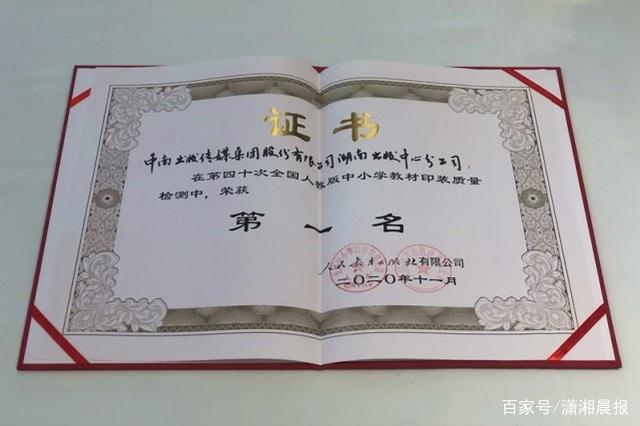 证书
中南出版传媒集团股份有限公司湖南出版中心分公司：
在第四十次全国人教版中小学教材印装质量
检测中，荣获
第一名
人民教育出版社有限公司
二〇二〇年十一月
百家号/潇湘晨报